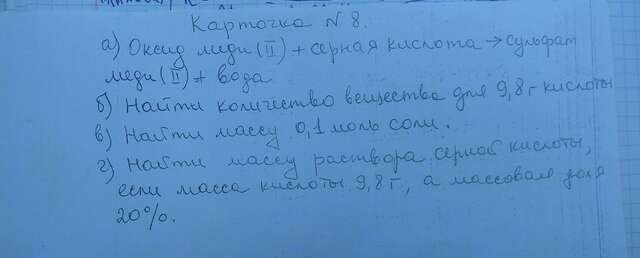 Карточка № 8.
а) Оксид меди (II) + серная кислота → сульфат
меди (II) + вода
б) Найти количество вещества для 9,8 г кислоты
в) Найти массу 0,1 моль соли.
г) Найти массу раствора серной кислоты,
если масса кислоты 9,8 г, а массовая доля
20%.